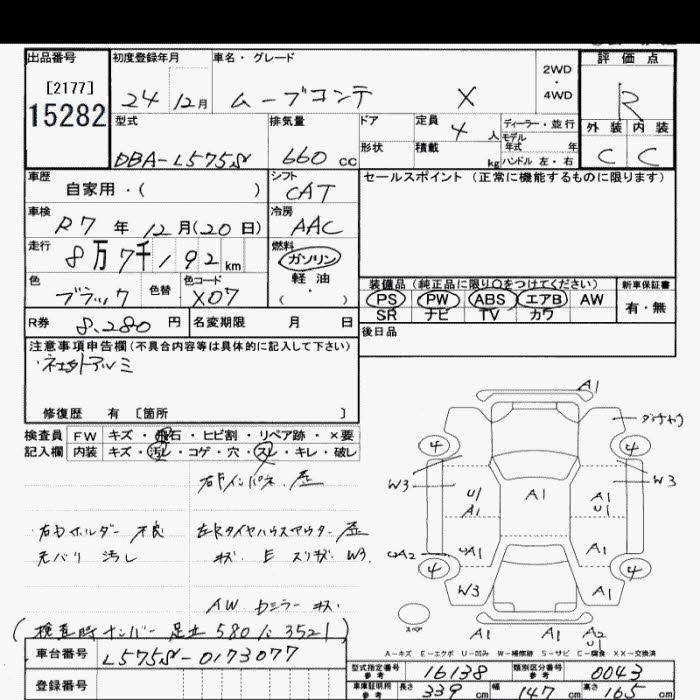 出品番号 初度登録年月 車名・グレード 2WD・4WD 評価点
[2177]
15282
24年12月 ムーブコンテ X R
型式 排気量 ドア 定員 4人 ディーラー・並行 外装 内装
モデル年式 年
DBA-L575S 660cc 形状 積載 kg ハンドル 左・右 C C
車歴 シフト セールスポイント(正常に機能するものに限ります)
自家用・( ) CAT
車検 冷房
R7年12月(20日) AAC
走行 燃料
8万7千192km ガソリン
軽油
色 色替 色コード ・( )
ブラック X07
装備品(純正品に限り○をつけてください) 新車保証書
PS PW ABS エアB AW 有・無
SR ナビ TV カワ
R券 8,280円 名変期限 月 日 後日品
注意事項申告欄(不具合内容等は具体的に記入して下さい)
・社外アルミ
修復歴 有 [箇所 ]
検査員 FW キズ・飛石・ヒビ割・リペア跡・×要
記入欄 内装 キズ・汚レ・コゲ・穴・スレ・キレ・破レ
A1
4 4
W3 W3
U1 A1 A1 A1 U1
右Fインパネ 歪
右Dホルダー 不良 左Rタイヤハウスアウター 歪
天バリ 汚レ キズ E スリキズ W3
UA2 UA1 A1
4 4
W3 A1
AWカシラー キズ
スペア
A1 A1 A2 U1
(検査時ナンバー 足立580に3521)
A-キズ E-エクボ U-凹み W-補修跡 S-サビ C-腐食 XX-交換済
車台番号 L575S-0173077
型式指定番号 参考 16138 類別区分番号 参考 0043
登録番号
車庫証明用 参考 長さ 339cm 幅 147cm 高さ 165cm